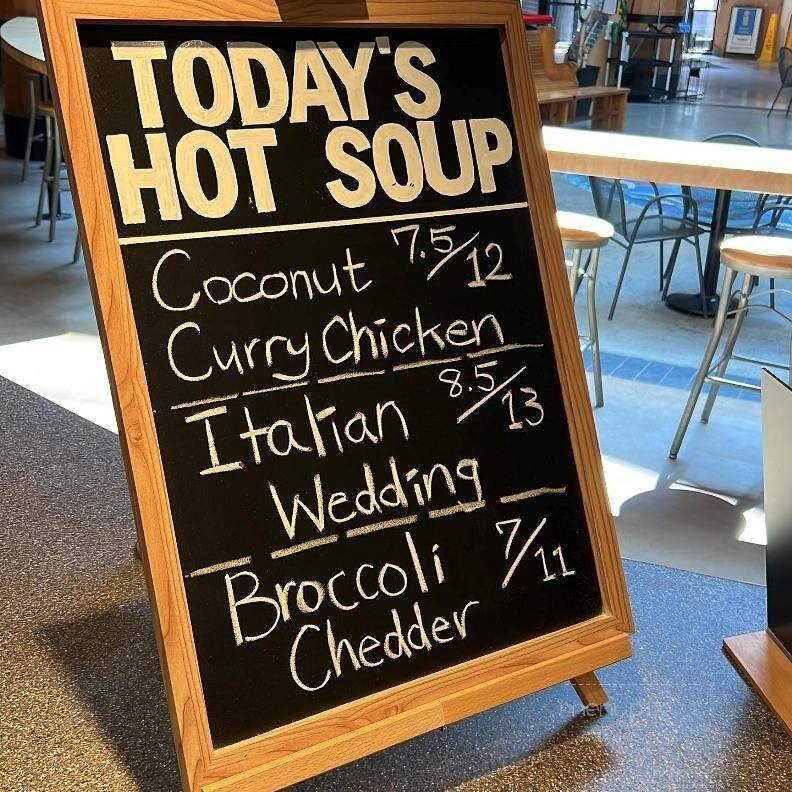 TODAY'S
HOT SOUP
Coconut 7.5/12
Curry Chicken
Italian 8.5/13
Wedding
Broccoli 7/11
Chedder